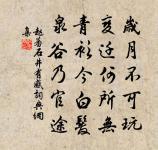 歲月不可玩
變迁何所無
青衫今白髮
泉谷乃官途
趙蕃石井有感詞典網
集